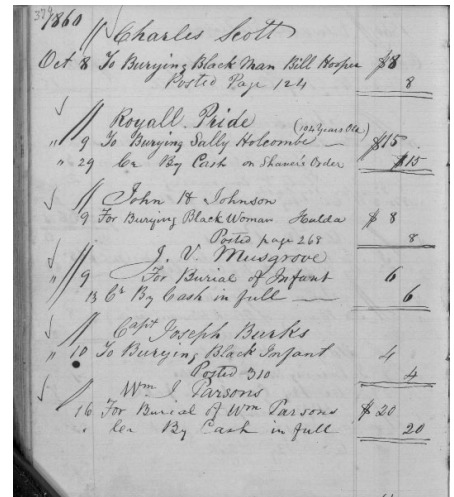 379
1860
// Charles Scott
Oct 8 To Burying Black Man Bill Hooper $8
Posted Page 124 8
√ // Royall Pride
(104 Years Old)
" 9 To Burying Sally Holcombe — $15
" 29 Cr By Cash on Shaver's Order $15
√ // John H Johnson
9 For Burying Black Woman Hulda $ 8
Posted page 268 8
√ // J. V. Musgrove
" 9 For Burial of Infant 6
13 Cr By Cash in full — 6
√ // Capt Joseph Burks
" 10 To Burying Black Infant 4
Posted 310 4
√ // Wm J Parsons
16 For Burial of Wm Parsons $ 20
" Cr By Cash in full 20